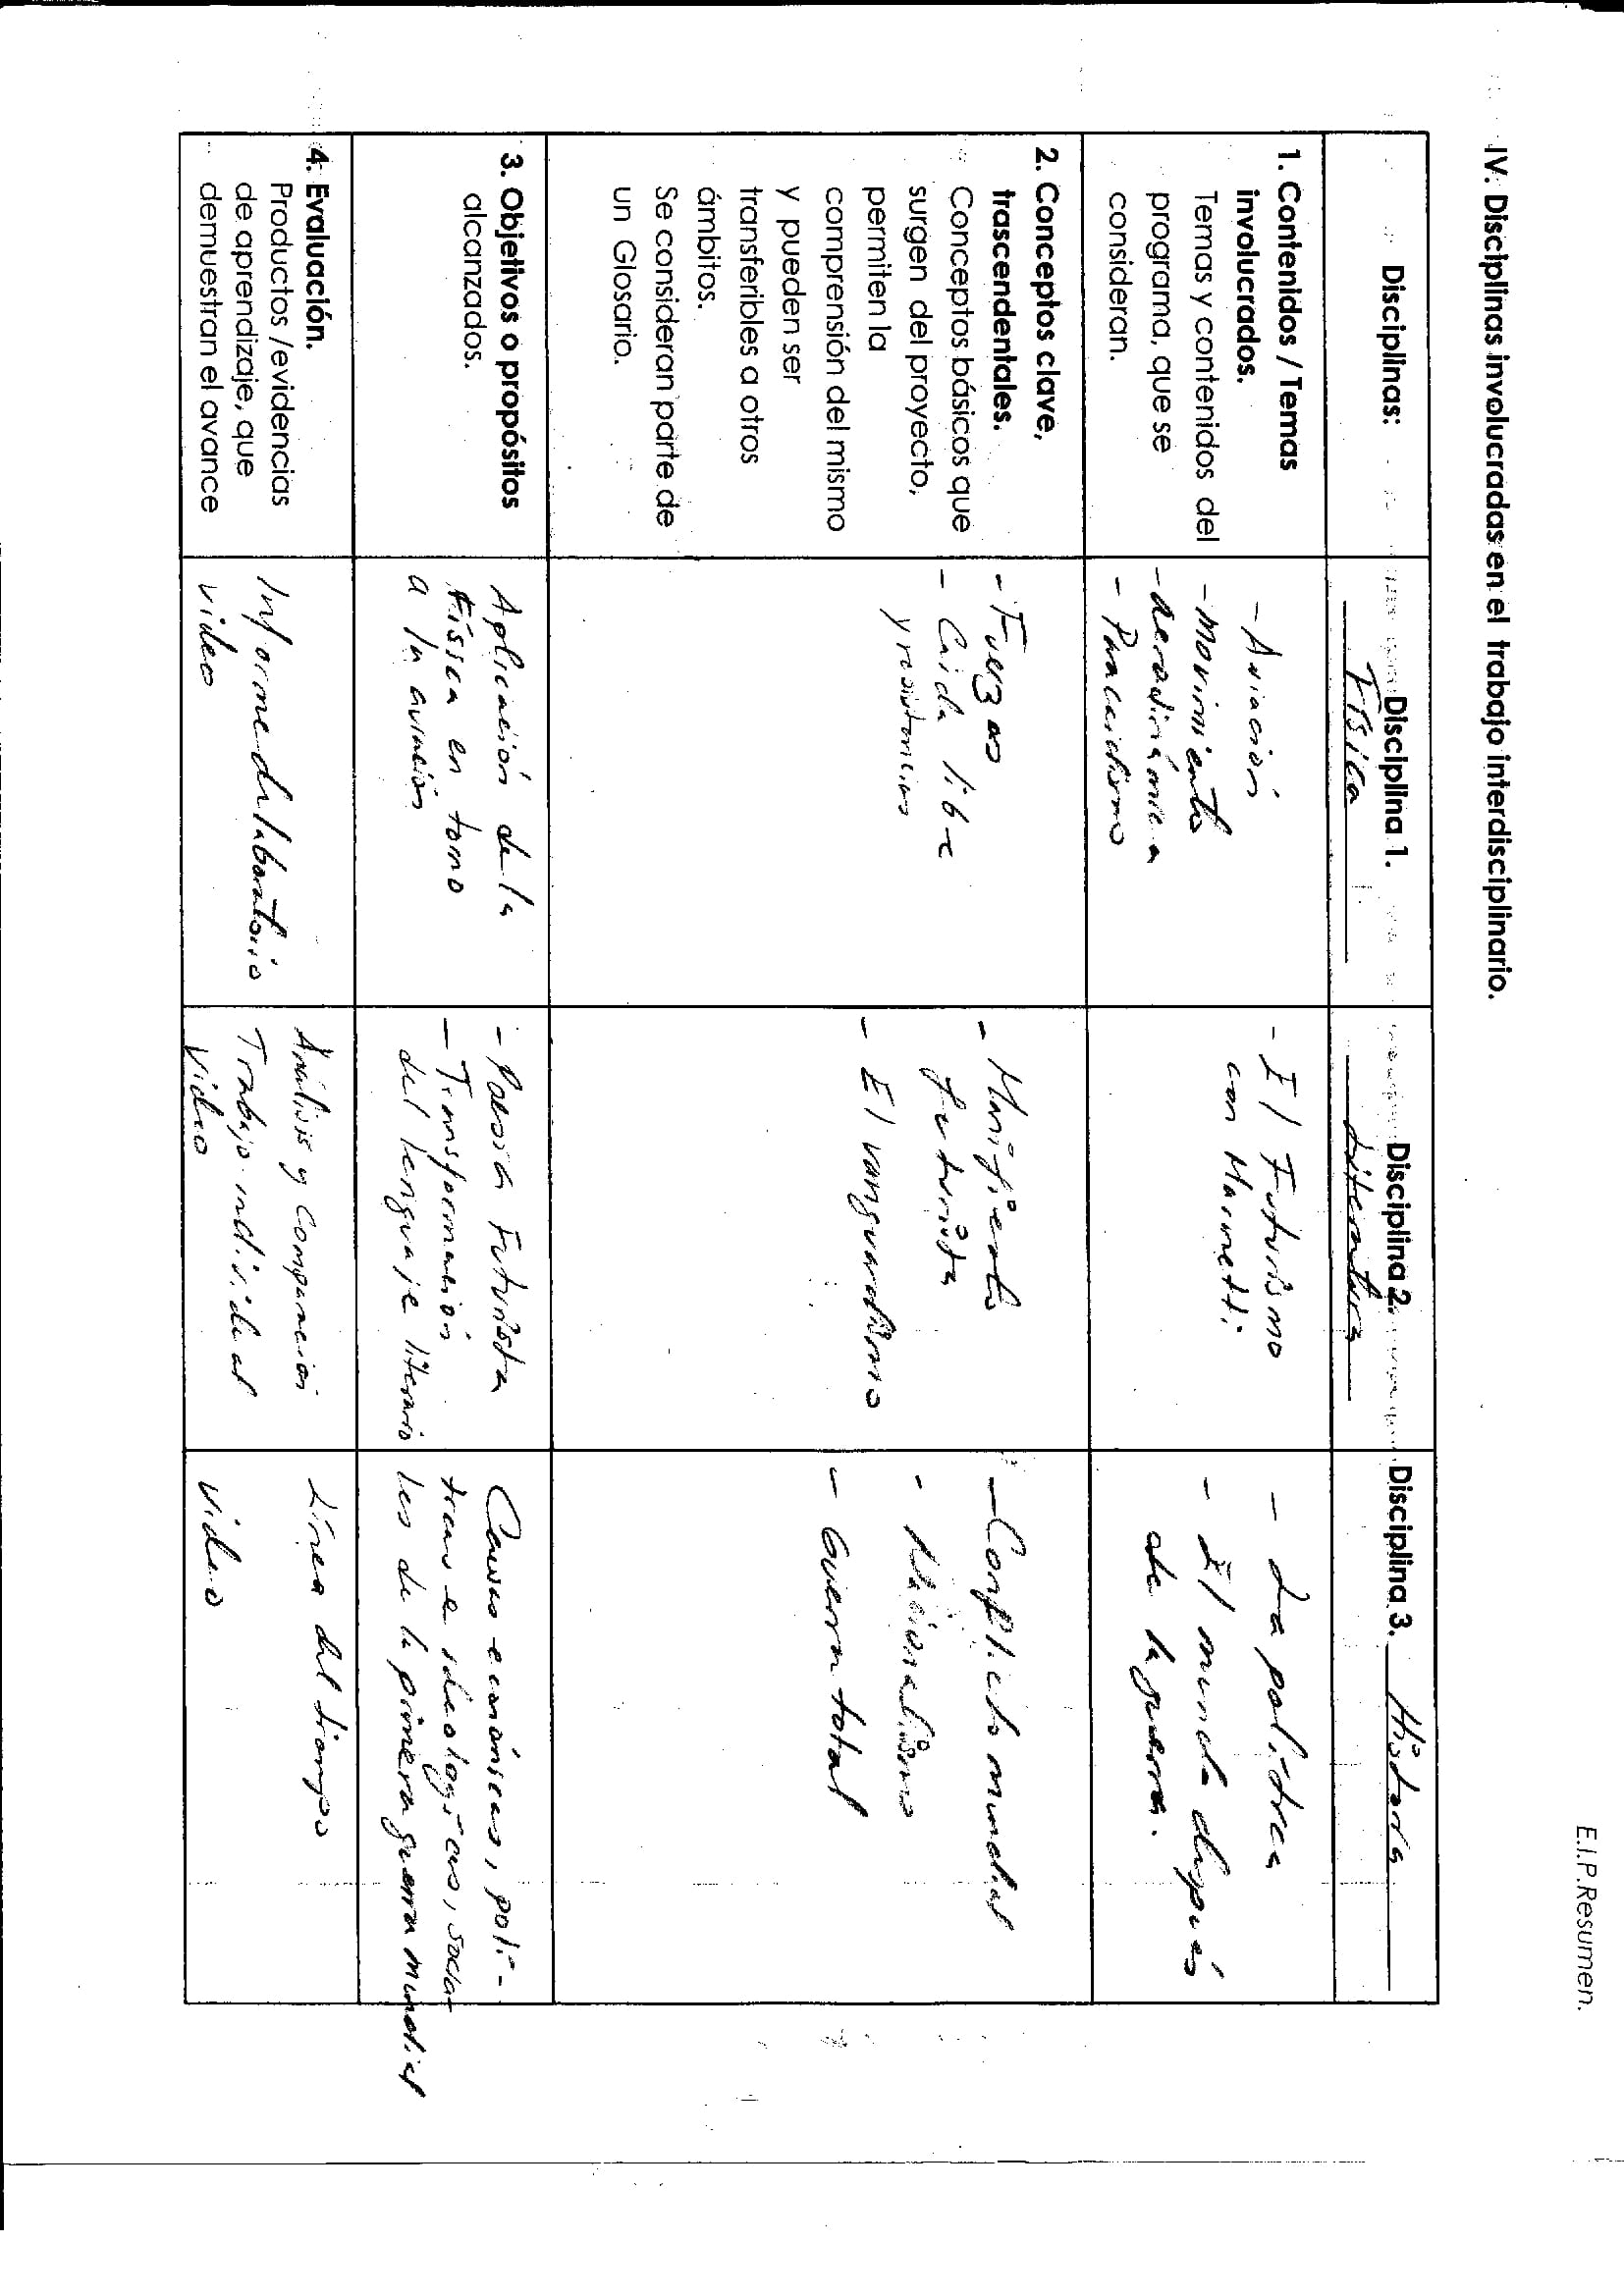 E.I.P.Resumen.
IV. Disciplinas involucradas en el trabajo interdisciplinario.
Disciplinas:
Disciplina 1.
Física
Disciplina 2.
Literatura
Disciplina 3. Historia
1. Contenidos / Temas
involucrados.
Temas y contenidos del
programa, que se
consideran.
- Aviación
- Movimiento
- Aerodinámica
- Paracaidismo
- El Futurismo
con Marinetti
- La política
- El mundo después
de la guerra.
2. Conceptos clave,
trascendentales.
Conceptos básicos que
surgen del proyecto,
permiten la
comprensión del mismo
y pueden ser
transferibles a otros
ámbitos.
Se consideran parte de
un Glosario.
- Fuerzas
- Caida libre
y resistencias
- Manifiesto
futurista
- El vanguardismo
- Conflicto mundial
- Nacionalismo
- Guerra total
3. Objetivos o propósitos
alcanzados.
Aplicación de la
Física en torno
a la aviación
- Poesía Futurista
- Transformación
del lenguaje literario
Causas económicas, polí-
ticas e ideologicas, socia-
les de la primera guerra mundial
4. Evaluación.
Productos /evidencias
de aprendizaje, que
demuestran el avance
Informe de laboratorio
video
Análisis y Comparación
Trabajo individual
Video
Línea del tiempo
Video